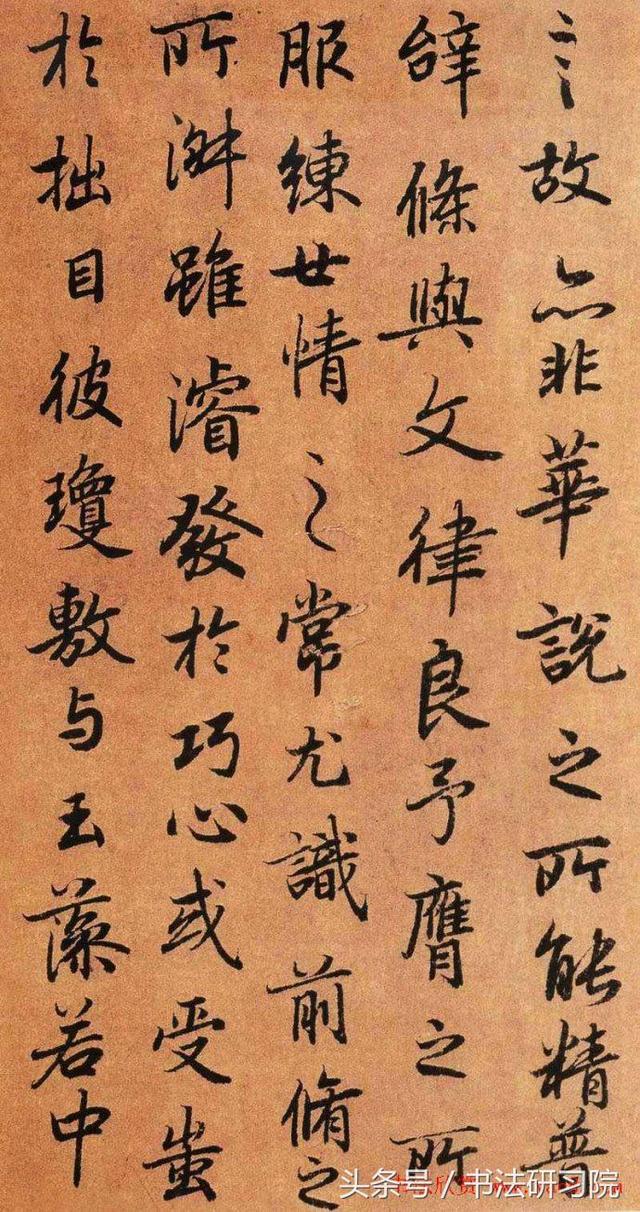 之故亦非華說之所能精普
辝條與文律良予膺之所
服練世情之常尤識前脩之
所淑雖濬發於巧心或受蚩
於拙目彼瓊敷与玉藻若中
头条号 / 书法研习院